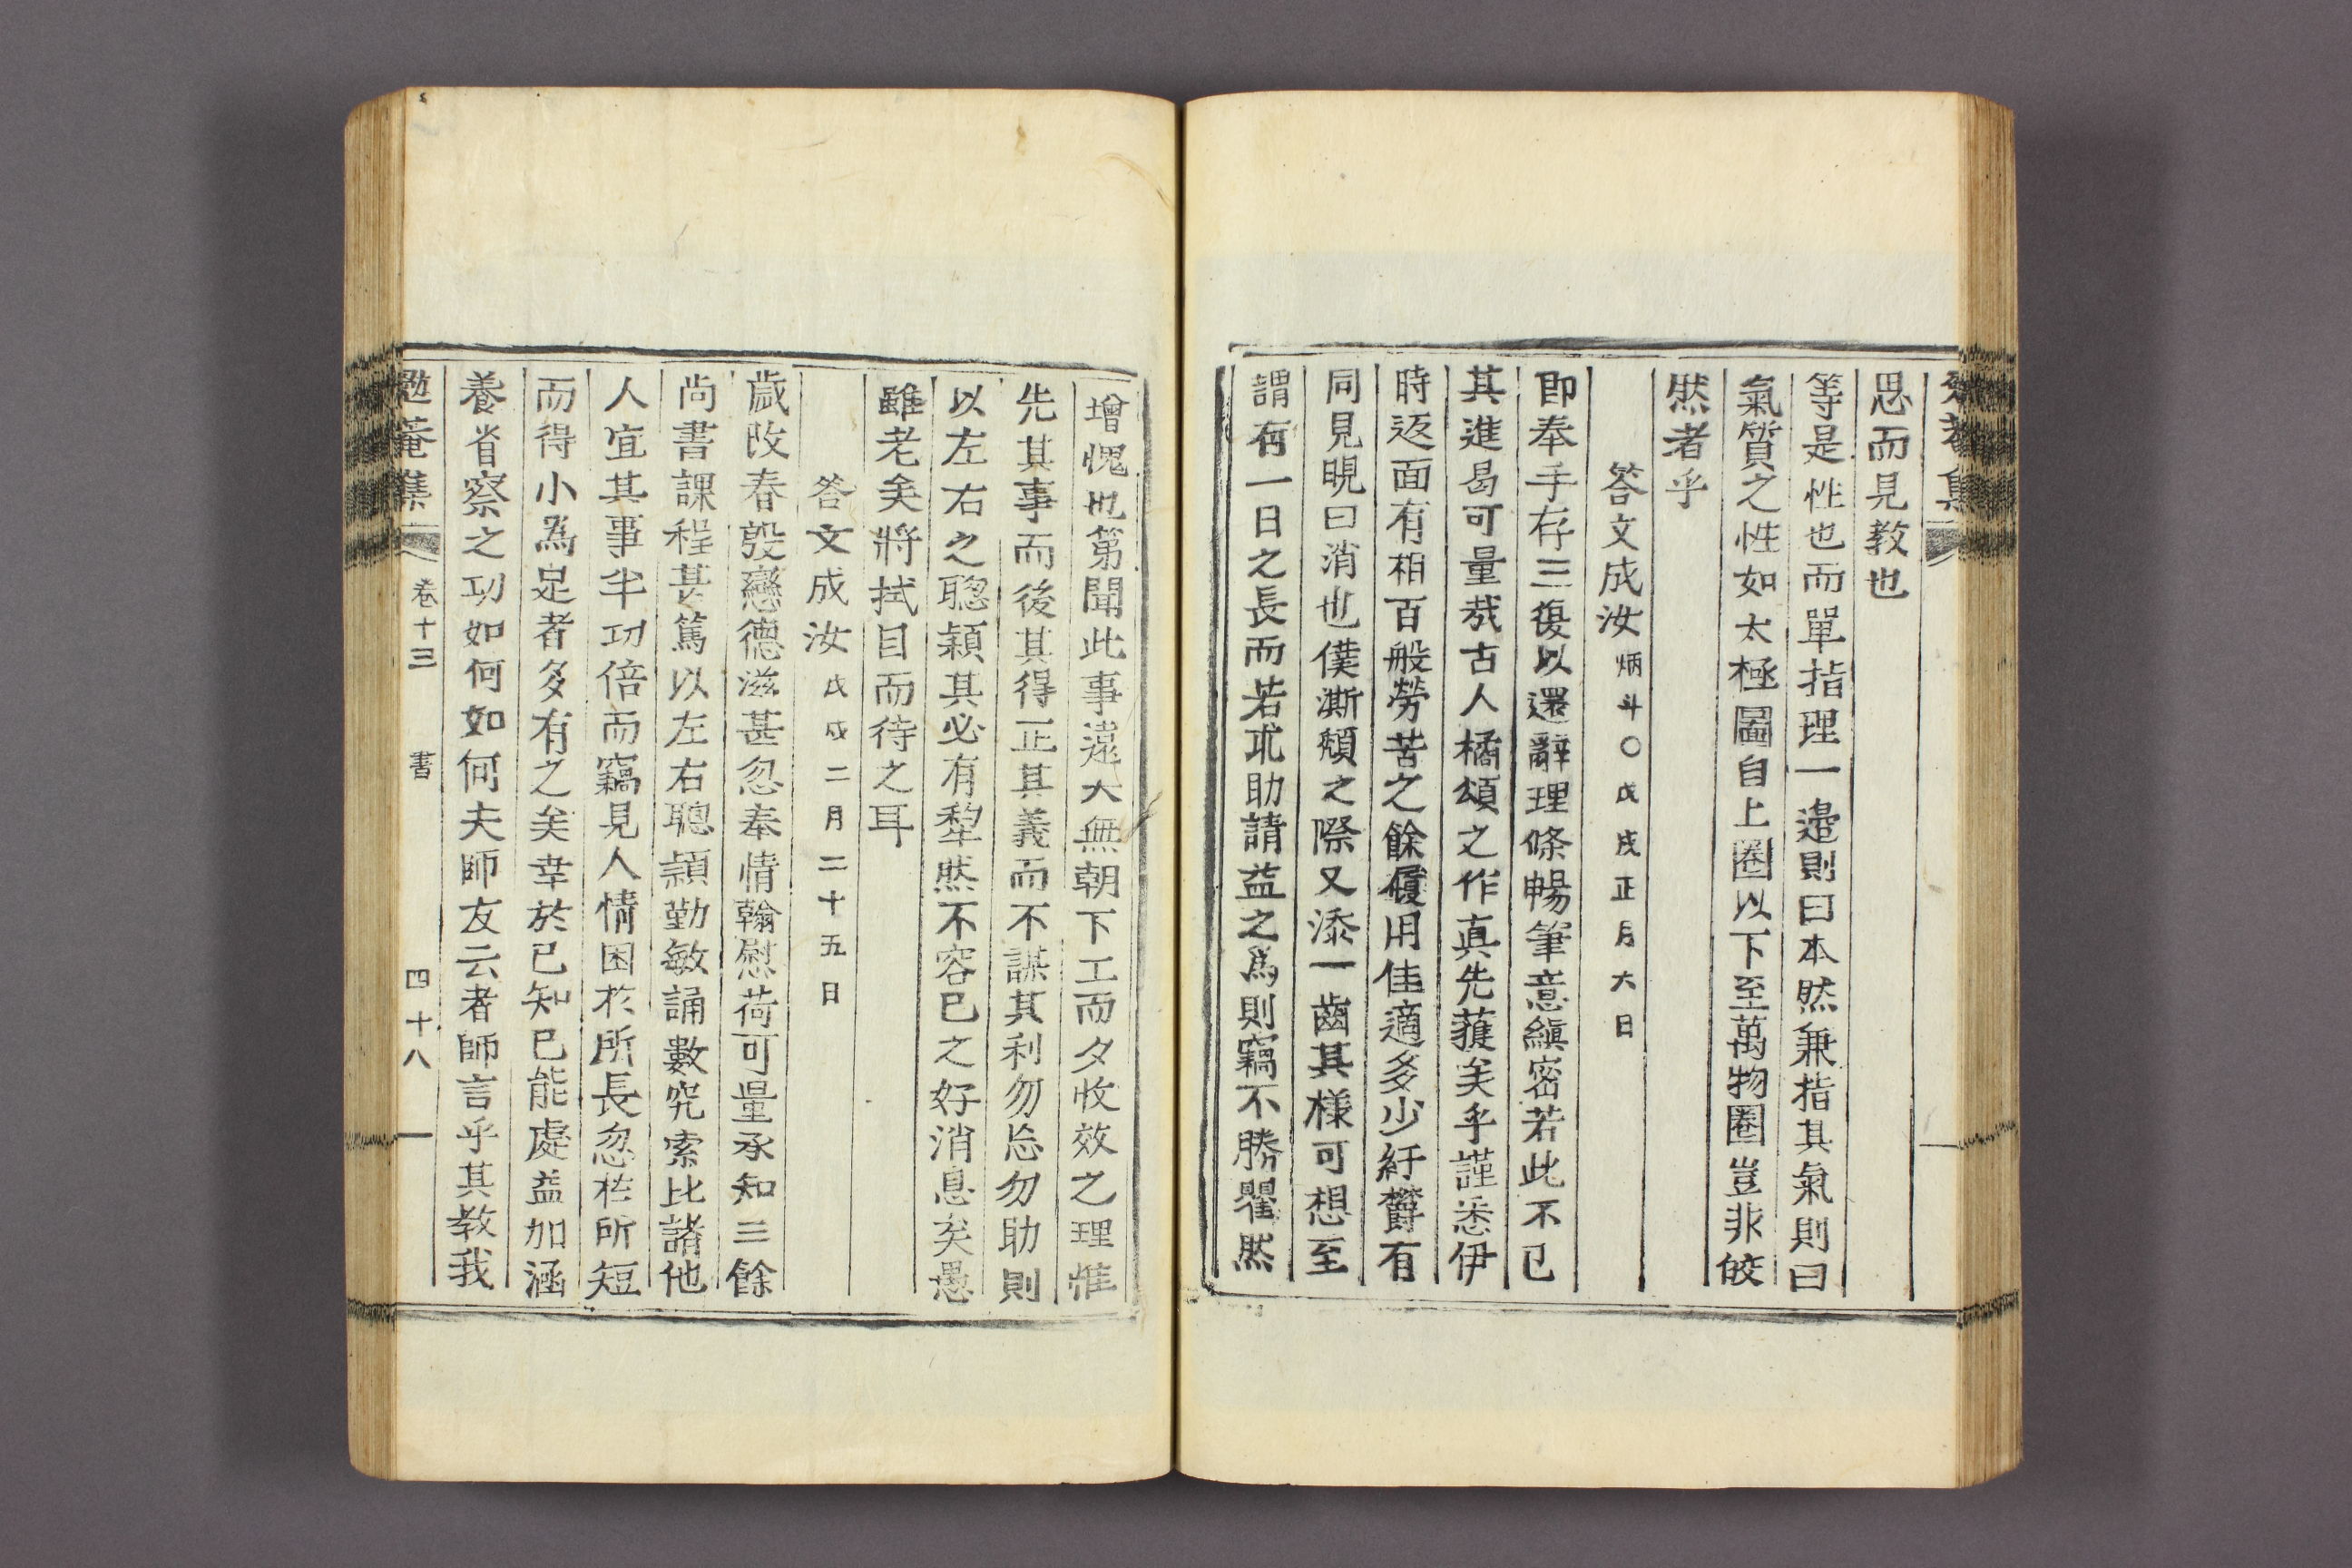 思而見教也
等是性也而單指理一邉則曰本然兼指其氣則曰
氣質之性如太極圖自上圈以下至萬物圈豈非皎
然者乎
答文成汝炳斗○戊戌正月六日
即奉手存三復以還辭理條暢筆意縝密若此不已
其進曷可量哉古人橘頌之作真先獲矣乎謹悉伊
時返面有相百般勞苦之餘履用佳適多少紆欝有
同見晛曰消也僕澌頹之際又添一齒其樣可想至
謂有一日之長而若求助請益之爲則竊不勝瞿然
增愧也第聞此事遠大無朝下工而夕收效之理惟
先其事而後其得正其義而不謀其利勿忘勿助則
以左右之聦穎其必有犂然不容已之好消息矣愚
雖老矣將拭目而待之耳
答文成汝戊戌二月二十五日
歲改春殷戀德滋甚忽奉情翰慰荷可量承知三餘
尙書課程甚篤以左右聰頴勤敏誦數究索比諸他
人宜其事半功倍而竊見人情困於所長忽於所短
而得小爲足者多有之矣幸於已知已能處益加涵
養省察之功如何如何夫師友云者師言乎其教我
勉菴集 卷十三 書 四十八